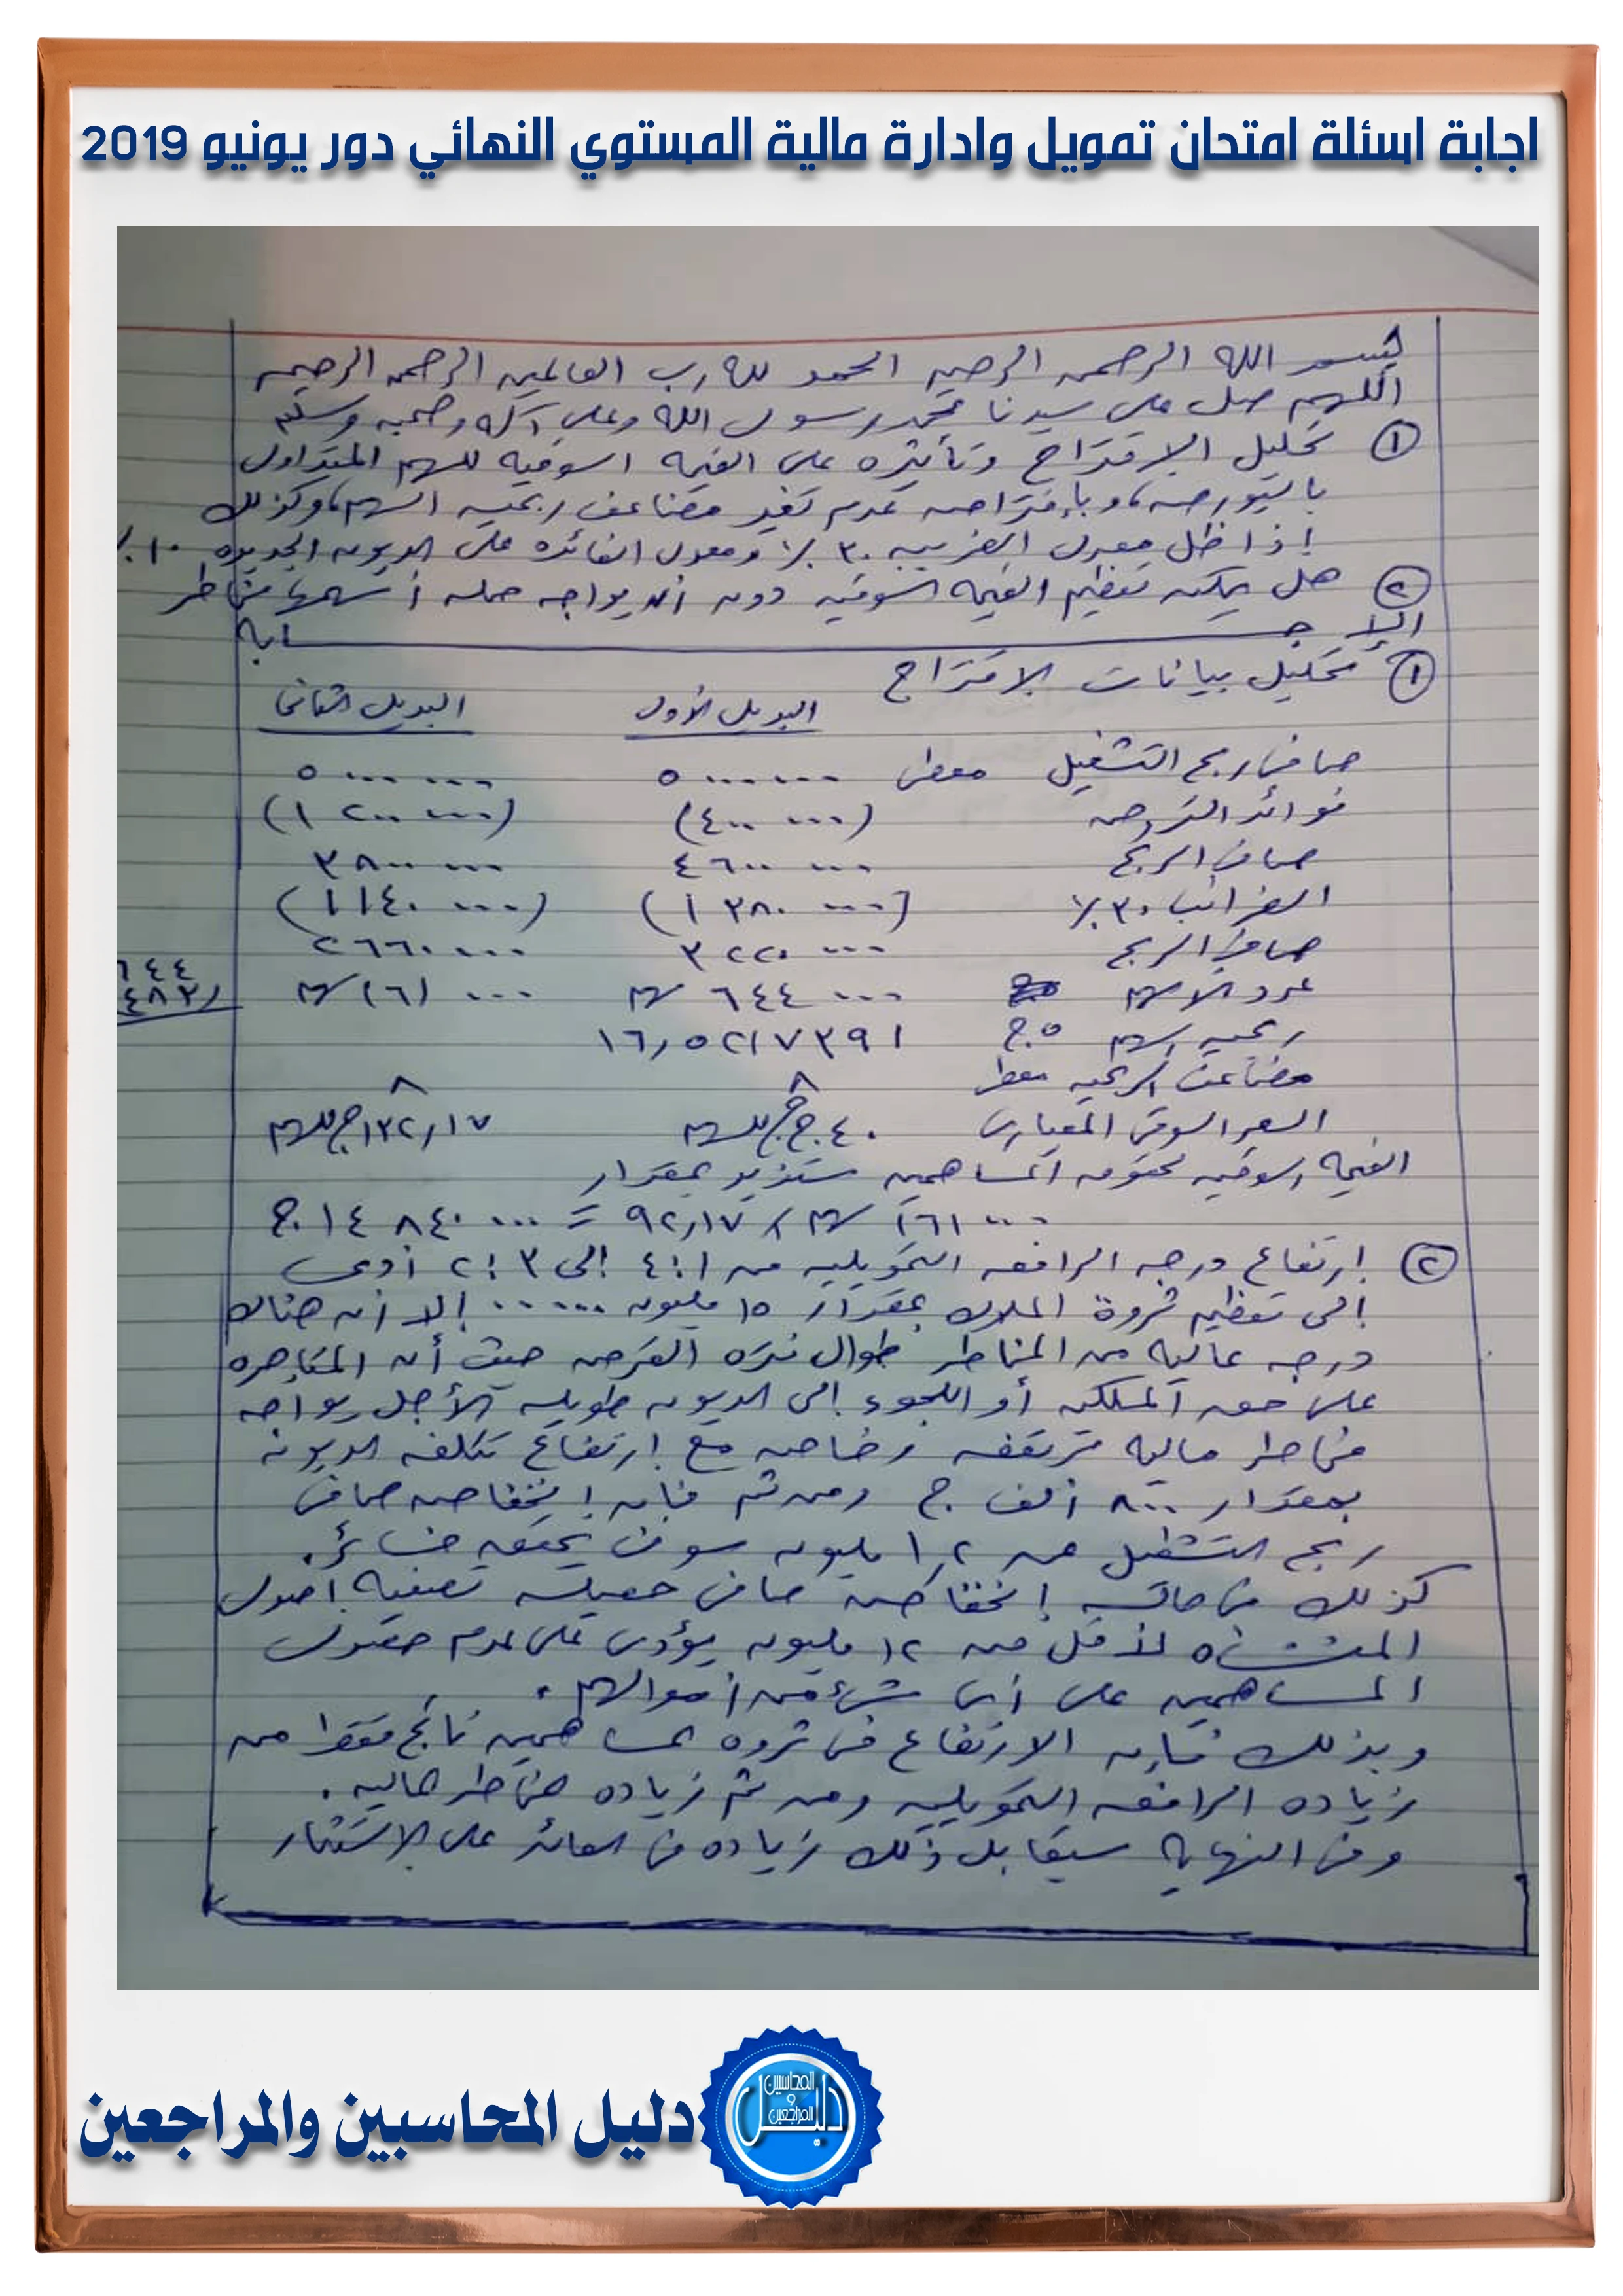 اجابة اسئلة امتحان تمويل وادارة مالية المستوي النهائي دور يونيو 2019
بسم الله الرحمن الرحيم الحمد لله رب العالمين الرحمن الرحيم
اللهم صل على سيدنا محمد رسول الله وعلى آله وصحبه وسلم
① تحليل الاقتراح وتأثيره على القيمه السوقيه للسهم المتداول
بالبورصه، وبإفتراض عدم تغير مضاعف ربحيه السهم، وكذلك
إذا ظل معدل الضريبه ٣٠٪ ومعدل الفائده على الديون الجديده ١٠٪
② هل يمكن تعظيم القيمه السوقيه دون أن يواجه حمله أسهمها مخاطر
الإجـــــــابه
① تحليل بيانات الاقتراح
البديل الأول البديل الثانى
صافى ربح التشغيل معطى ٥٠٠٠٠٠٠ ٥٠٠٠٠٠٠
فوائد القروض (٤٠٠٠٠٠) (١٢٠٠٠٠٠)
صافى الربح ٤٦٠٠٠٠٠ ٣٨٠٠٠٠٠
الضرائب ٣٠٪ (١٣٨٠٠٠٠) (١١٤٠٠٠٠)
صافى الربح ٣٢٢٠٠٠٠ ٢٦٦٠٠٠٠
عدد الأسهم ٦٤٤٠٠٠ سهم ١٦١٠٠٠ سهم
٦٤٤
٤٨٣
ربحيه السهم ٥ج ١٦,٥٢١٧٣٩١
مضاعف الربحيه معطى ٨ ٨
السعر السوقى المعيارى ٤٠ ج للسهم ١٣٢,١٧ ج للسهم
القيمه السوقيه لحقوق المساهمين ستزيد بمقدار
١٦١٠٠٠ سهم × ٩٢,١٧ = ١٤٨٤٠٠٠٠ ج
② إرتفاع درجه الرافعه التمويليه من ٤:١ إلى ٢:٣ أدى
إلى تعظيم ثروة الملاك بمقدار ١٥ مليون ...... إلا أن هناك
درجه عاليه من المخاطر طوال فتره القرض حيث أن المتاجره
على حق الملكيه أو اللجوء إلى الديون طويله الأجل يواجه
مخاطر ماليه مرتفعه وخاصه مع إرتفاع تكلفه الديون
بمقدار ٨٠٠ ألف ج ومن ثم فإن إنخفاض صافى
ربح التشغيل عن ١,٢ مليون سوف يحقق خسائر.
كذلك فى حاله إنخفاض صافى حصيله تصفيه أصول
المنشأه لأقل من ١٢ مليون يؤدى على عدم حصول
المساهمين على أى شئ من أموالهم.
وبذلك فإن الارتفاع فى ثروه المساهمين ناتج فقط من
زياده الرافعه التمويليه ومن ثم زياده مخاطر ماليه.
وفى النهايه سيقابل ذلك زياده فى العائد على الاستثمار
دليل المحاسبين والمراجعين
دليل
المحاسبين
و
المراجعين